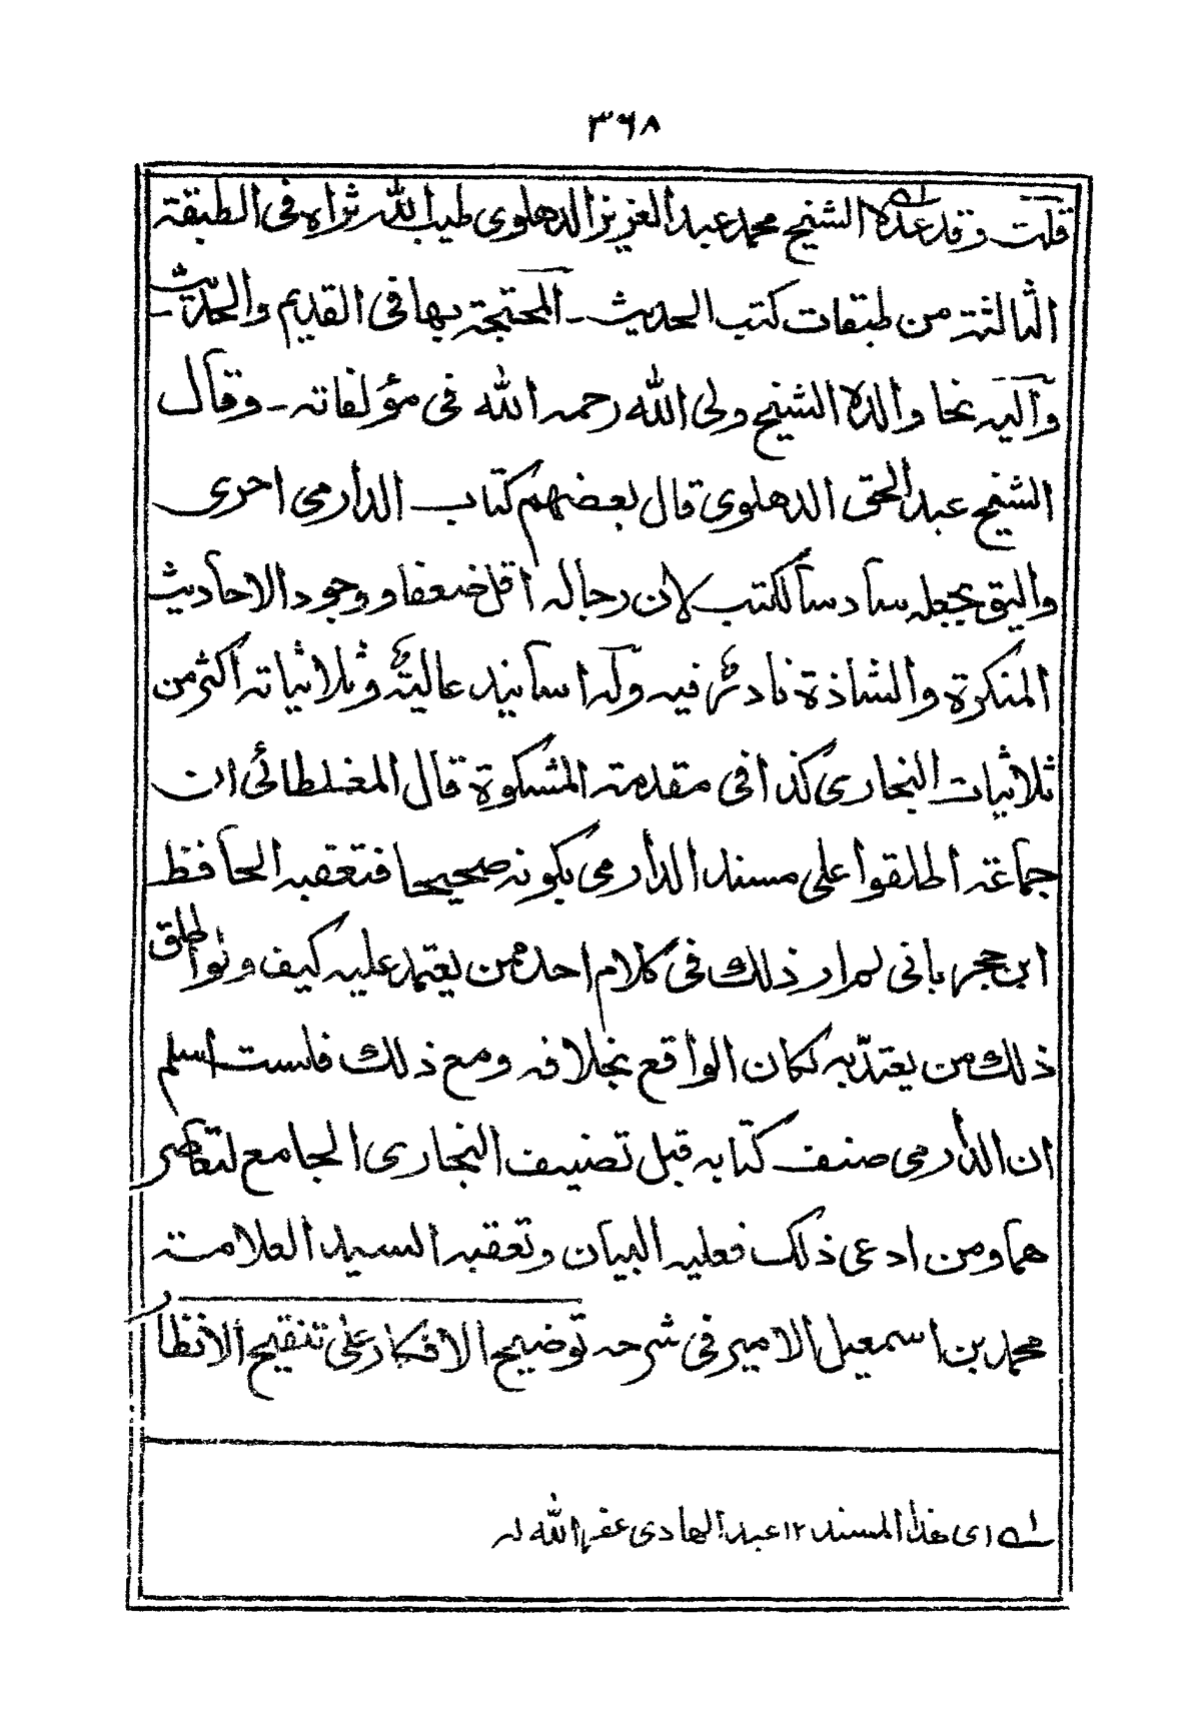 ٣٦٨
قلت وقد عده الشيخ محمد عبد العزيز الدهلوى طيب الله ثراه فى الطبقة
الثالثة من طبقات كتب الحديث - المحتجة بها فى القديم والحديث -
واليه نحا والده الشيخ ولى الله رحمه الله فى مؤلفاته - وقال
الشيخ عبد الحق الدهلوى قال بعضهم كتاب الدارمى احرى
واليق بجعله سادسا للكتب لان رجاله اقل ضعفا ووجود الاحاديث
المنكرة والشاذة نادر فيه وله اسانيد عالية وثلاثياته اكثر من
ثلاثيات البخارى كذا فى مقدمة المشكوة قال المغلطائى ان
جماعة اطلقوا على مسند الدارمى بكونه صحيحا فتعقبه الحافظ
ابن حجر بانى لم ار ذلك فى كلام احد ممن يعتمد عليه كيف ولو اطلق
ذلك من يعتد به لكان الواقع بخلافه ومع ذلك فلست اسلم
ان الدارمى صنف كتابه قبل تصنيف البخارى الجامع لتعاصر
هما ومن ادعى ذلك فعليه البيان وتعقبه السيد العلامة
محمد بن اسمعيل الامير فى شرحه توضيح الافكار على تنقيح الانظار
اى هذا المسند ١٢ عبد الهادى غفر الله له